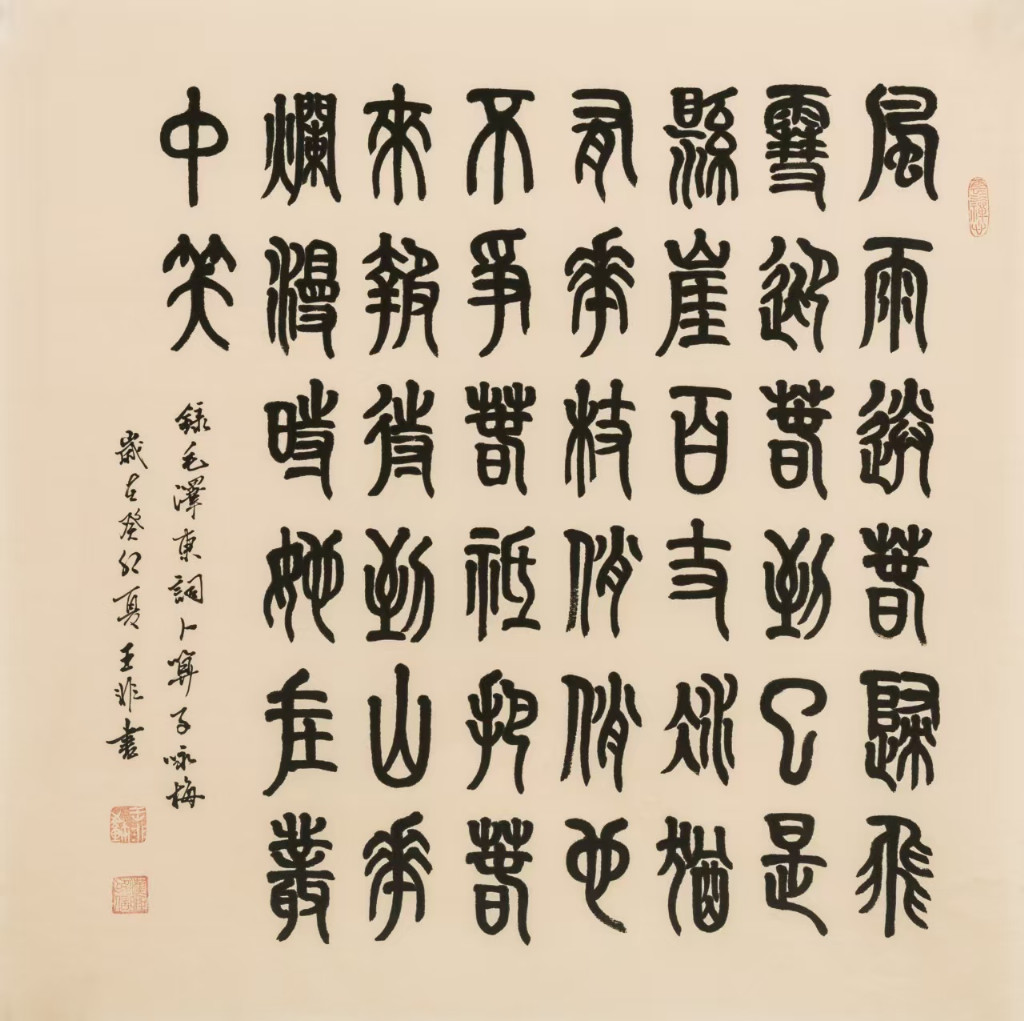 風雨送春歸飛
雪迎春到已是
縣崖百丈冰猶
有花枝俏俏也
不爭春祇把春
來報待到山花
爛漫時她在叢
中笑
錄毛澤東詞卜算子咏梅
歲在癸卯夏王非書